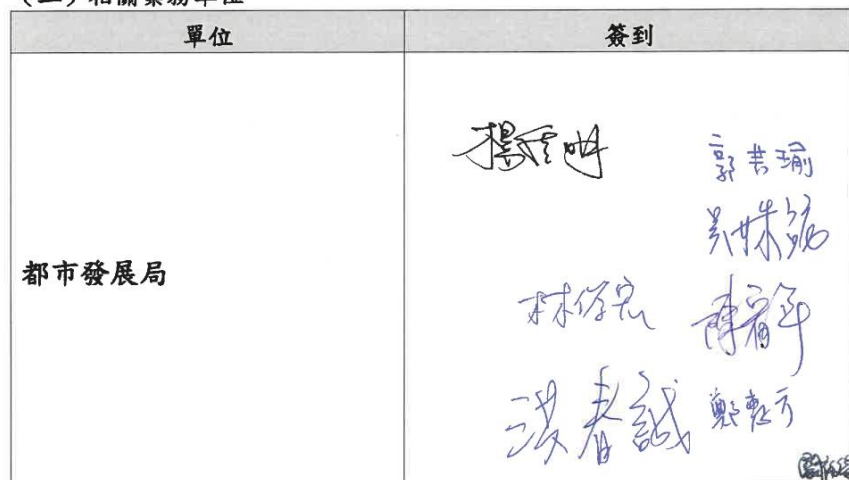 相關業務單位
單位
簽到
都市發展局
郭芸瑜
吳姝
林俊宏
洪春誠
鄭惠方